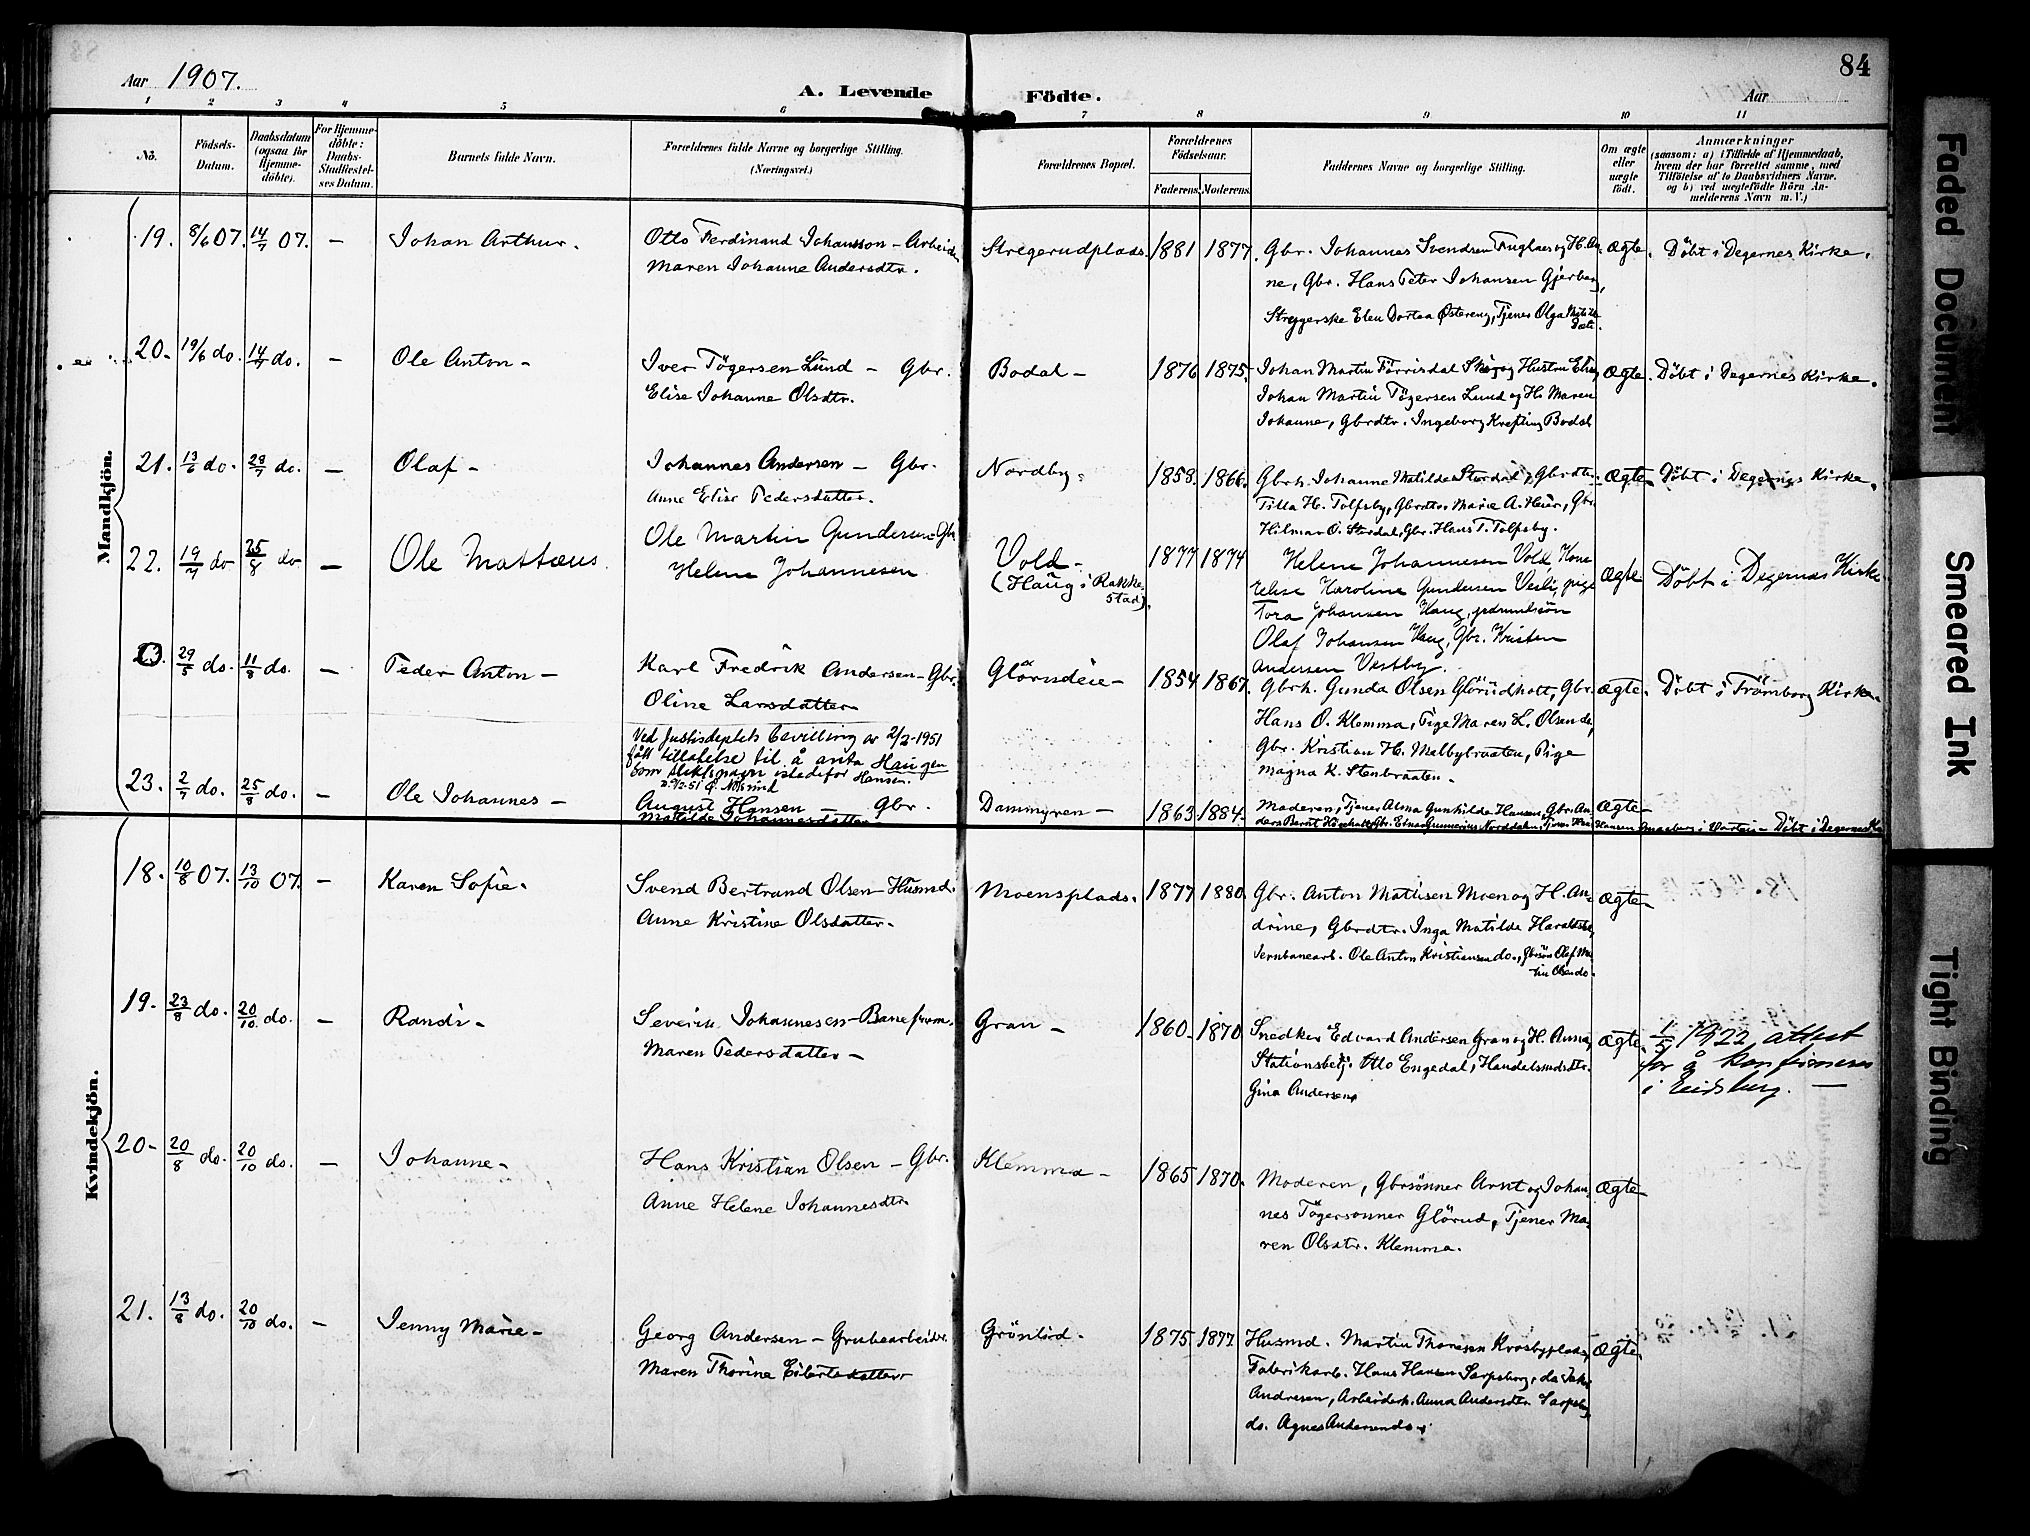 84
Aar 1907.
A. Levende Födte.
Aar
1 2 3 4 5 6 7 8 9 10 11
No.
Födsels-Datum.
Daabsdatum (ogsaa for Hjemme-döbte).
For Hjemme-döbte: Daabs-Stadfæstel-ses Datum.
Barnets fulde Navn.
Forældrenes fulde Navne og borgerlige Stilling. (Næringsvei.)
Forældrenes Bopæl.
Forældrenes Födselsaar.
Faderens. Moderens.
Faddernes Navne og borgerlige Stilling.
Om ægte eller uægte födt.
Anmærkninger
(saasom: a) i Tilfælde af Hjemmedaab,
hvem der har forrettet samme, med
Tilföielse af to Daabsvidners Navne.
og b) ved uægtefödte Börn An-
melderens Navn m. V.)
Mandkjön.
19. 8/6 07. 14/7 07. — Johan Arthur.
Otto Ferdinand Johansson - Arbeider
Maren Johanne Andersdtr.
Stregerudplads. 1881 1877.
Gbr. Johannes Svendsen Fuglaes og H. An-
ne, Gbr. Hans Peter Johansen Gjerberg,
Strygerske Elen Dortea Østereng, Tjener Olga
Ægte. Döbt i Degernes Kirke.
20. 19/6 do. 14/7 do. — Ole Anton -
Iver Tögersen Lund - Gbr.
Elise Johanne Olsdtr.
Bodal - 1876 1875.
Johan Martin Hustru
Johan Martin Tögersen Lund og H. Maren
Johanne, Gbrdtr. Ingeborg Krefting Bodal
Ægte. Döbt i Degernes Kirke.
21. 13/6 do. 28/7 do. — Olaf -
Johannes Andersen - Gbr.
Anne Elise Pedersdatter.
Nordby. 1858. 1866.
Gbrh. Johanne Matilde Stordal, Gbrdtr.
Tilla H. Tolfsby, Gbrdtr. Marie A. Heier, Gbr.
Hilmar O. Stordal, Gbr. Hans T. Tolfsby.
Ægte. Döbt i Degernes Kirke.
22. 19/7 do 25/8 do — Ole Mattæus.
Ole Martin Gundersen Gbr
Helene Johannesen
Vold -
(Haug i Rakke-
stad). 1877 1874
Helene Johannesen Vold, Kone
Elise Karoline Gundersen Vesli, pige
Tora Johansen Haug, grdmandssön
Olaf Johansen Haug, Gbr. Kristen
Andersen Vestby.
Ægte Döbt i Degernæs Kirke
23. 29/5 do. 11/8 do. — Peder Anton -
Karl Fredrik Andersen - Gbr.
Oline Larsdatter
Glörudeie - 1854 1867.
Gbrh. Gunda Olsen Glörudholt, Gbr.
Hans O. Klemma, Pige Maren L. Olsen do,
Gbr. Kristian H. Melbybraaten, Pige
Magna K. Stenbraaten.
Ægte. Döbt i Trömborg Kirke.
Ved Justisdeptets bevilling av 2/2-1951
fått tillatelse til å anta Haugen
som slektsnavn istedefor Hansen.
23. 2/7 do. 25/8 do. — Ole Johannes -
August Hansen - Gbr.
Matilde Johannesdatter
Dammyren - 1863 1884.
Moderen, Tjener Alma Gunhilde Hansen, Gbr. An-
ders Bernt Gbr. Gunnerius Norddalen, Tjener
Ægte - Döbt i Degernes
Kvindekjön.
18. 10/8 07. 13/10 07. — Karen Sofie.
Svend Bertrand Olsen - Husmd.
Anne Kristine Olsdatter.
Moensplads. 1877 1880.
Gbr. Anton Mattisen Moen og H. An-
drine, Gbrdtr. Inga Matilde
Jernbanearb. Ole Anton Kristiansen do., Gbrsön Olaf
Olsen do.
Ægte -
19. 23/8 do. 20/10 do. — Randi -
Severin Johannesen - Baneform.
Maren Pedersdatter -
Gran - 1860. 1870
Snedker Edvard Andersen Gran og H. Anna,
Stationsbetj. Otto Engedal, Handelsmdsdtr.
Gina Andersen.
Ægte. 1/5 1922 attest
for å konfirmeres
i Eidsberg. —
20. 20/8 do. 20/10 do. — Johanne -
Hans Kristian Olsen - Gbr.
Anne Helene Johannesdtr
Klemma - 1865 1870.
Moderen, Gbrsönner Arnt og Johan-
nes Tögersönner Glörud, Tjener Ma-
ren Olsdtr. Klemma.
Ægte -
21. 13/8 do. 20/10 do. — Jenny Marie -
Georg Andersen - Grubearbeider.
Maren Thorine Eilertsdatter
Grönlid. 1875 1877.
Husmd. Martin Thoresen Krosbyplads,
Fabrikarb. Hans Hansen Sarpsborg, do
Andresen, Arbeiderh. Anna Andersdtr. Sarpsborg,
do. Agnes Andersen do.
Ægte.
Faded Document
Smeared Ink
Tight Binding